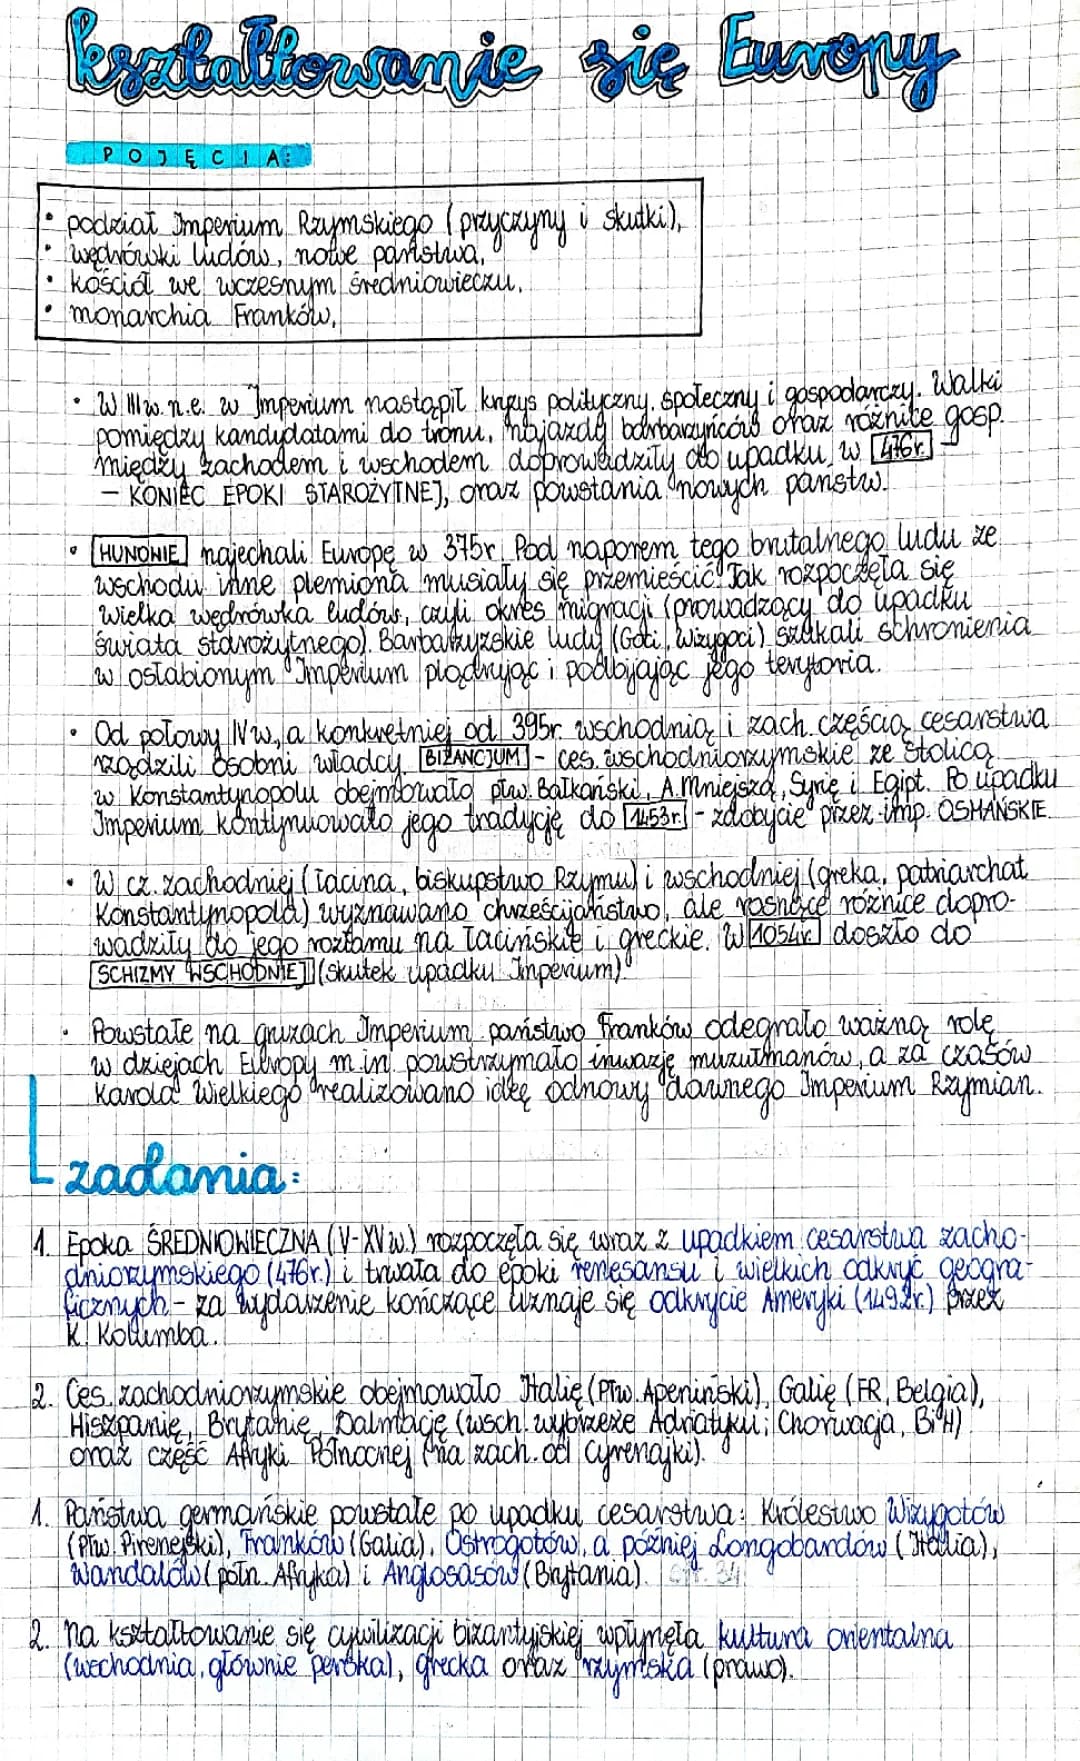 kształtowanie się Europy
POJĘCIA:
• podział Imperium Rzymskiego (przyczyny i skutki),
• wędrówki ludów, nowe państwa,
• kościół we wczesnym średniowieczu,
• monarchia Franków,
• W III w. n.e. w Imperium nastąpił kryzys polityczny, społeczny i gospodarczy. Walki
pomiędzy kandydatami do tronu, najazdy barbarzyńców oraz różnice gosp.
między zachodem i wschodem doprowadziły do upadku w 476r. –
– KONIEC EPOKI STAROŻYTNEJ, oraz powstania nowych państw.
• HUNOWIE najechali Europę w 375r. Pod naporem tego brutalnego ludu ze
wschodu inne plemiona musiały się przemieścić. Tak rozpoczęła się
wielka wędrówka ludów, czyli okres migracji (prowadzący do upadku
świata starożytnego). Barbarzyzskie ludy (Goci, Wizygoci) szukali schronienia
w osłabionym Imperium plądrując i podbijając jego terytoria.
• Od połowy IV w., a konkretniej od 395r. wschodnią i zach. częścią cesarstwa
rządzili osobni władcy. BIZANCJUM - ces. wschodniorzymskie ze stolicą
w Konstantynopolu obejmowało płw. Bałkański, A.Mniejszą, Syrię i Egipt. Po upadku
Imperium kontynuowało jego tradycję do 1453r. - zdobycie przez imp. OSMAŃSKIE.
• W cz. zachodniej (łacina, biskupstwo Rzymu) i wschodniej (greka, patriarchat
Konstantynopola) wyznawano chrześcijaństwo, ale rosnące różnice dopro-
wadziły do jego rozłamu na łacińskie i greckie. W 1054r. doszło do
SCHIZMY WSCHODNIEJ (skutek upadku Imperium)
• Powstałe na gruzach Imperium państwo Franków odegrało ważną rolę
w dziejach Europy m.in. powstrzymało inwazję muzułmanów, a za czasów
Karola Wielkiego realizowano ideę odnowy dawnego Imperium Rzymian.
zadania:
1. Epoka ŚREDNIOWIECZNA (V-XV w.) rozpoczęła się wraz z upadkiem cesarstwa zacho-
dniorzymskiego (476r.) i trwała do epoki renesansu i wielkich odkryć geogra-
ficznych - za wydarzenie kończące uznaje się odkrycie Ameryki (1492r.) przez
K. Kolumba.
2. Ces. zachodniorzymskie obejmowało Italię (Płw. Apeniński), Galię (FR, Belgia),
Hiszpanię, Brytanię, Dalmację (wsch. wybrzeże Adriatyku; Chorwacja, BiH)
oraz część Afryki Północnej (na zach. od Cyrenajki).
1. Państwa germańskie powstałe po upadku cesarstwa: Królestwo Wizygotów
(Płw. Pirenejski), Franków (Galia), Ostrogotów, a później Longobardów (Italia),
Wandalów (półn. Afryka) i Anglosasów (Brytania). str. 34
2. Na kształtowanie się cywilizacji bizantyjskiej wpłynęła kultura orientalna
(wschodnia, głównie perska), grecka oraz rzymska (prawo).